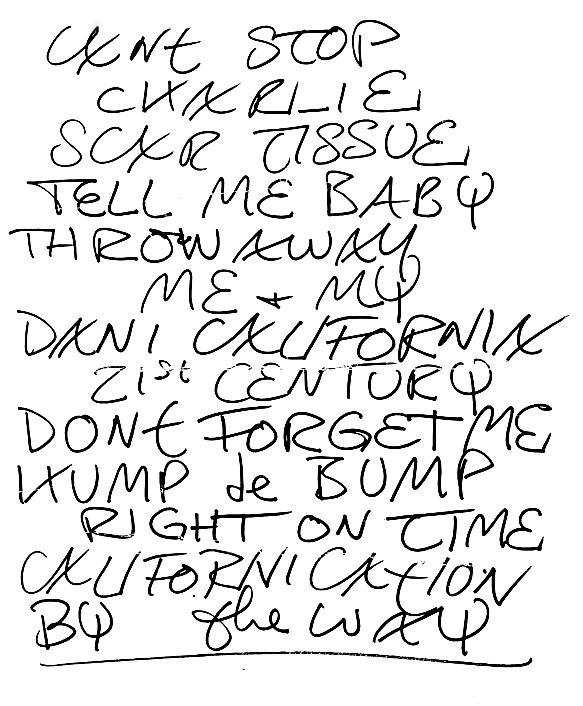 CANT STOP
CHARLIE
SCAR TISSUE
TELL ME BABY
THROW AWAY
ME + MY
DANI CALIFORNIA
21st CENTURY
DONT FORGET ME
HUMP de BUMP
RIGHT ON TIME
CALIFORNICATION
BY the WAY